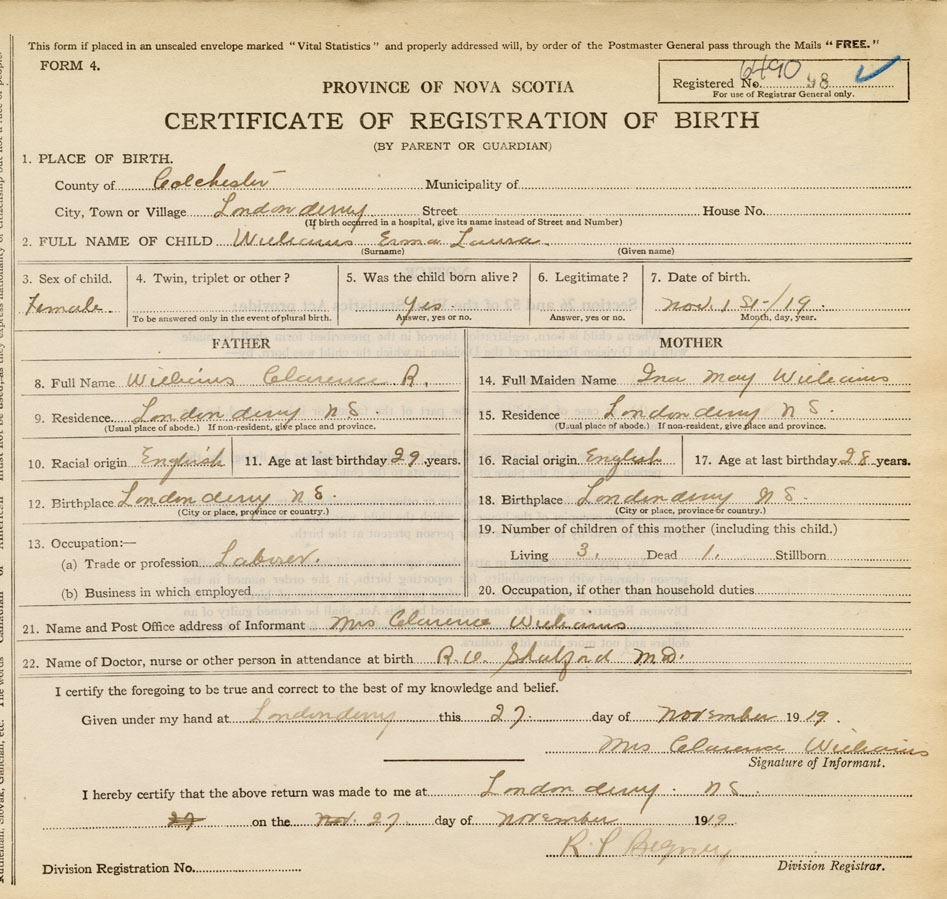 This form if placed in an unsealed envelope marked "Vital Statistics" and properly addressed will, by order of the Postmaster General pass through the Mails "FREE."
FORM 4.
6490
Registered No. 98
For use of Registrar General only.
PROVINCE OF NOVA SCOTIA
CERTIFICATE OF REGISTRATION OF BIRTH
(BY PARENT OR GUARDIAN)
1. PLACE OF BIRTH.
County of Colchester Municipality of
City, Town or Village Londonderry Street House No.
(If birth occurred in a hospital, give its name instead of Street and Number)
2. FULL NAME OF CHILD Williams Erma Laura
(Surname) (Given name)
3. Sex of child. 4. Twin, triplet or other? 5. Was the child born alive? 6. Legitimate? 7. Date of birth.
Female Yes Nov. 1 St/19.
To be answered only in the event of plural birth. Answer, yes or no. Answer, yes or no. Month, day, year.
FATHER MOTHER
8. Full Name Williams Clarence R. 14. Full Maiden Name Ina May Williams
9. Residence Londonderry N S. 15. Residence Londonderry N S.
(Usual place of abode.) If non-resident, give place and province. (Usual place of abode.) If non-resident, give place and province.
10. Racial origin English 11. Age at last birthday 29 years. 16. Racial origin English 17. Age at last birthday 28 years.
12. Birthplace Londonderry N S. 18. Birthplace Londonderry N S.
(City or place, province or country.) (City or place, province or country.)
13. Occupation:— 19. Number of children of this mother (including this child.)
(a) Trade or profession Laborer. Living 3. Dead 1. Stillborn
(b) Business in which employed 20. Occupation, if other than household duties
21. Name and Post Office address of Informant Mrs Clarence Williams
22. Name of Doctor, nurse or other person in attendance at birth M.D.
I certify the foregoing to be true and correct to the best of my knowledge and belief.
Given under my hand at Londonderry this 27. day of November 1919.
Mrs Clarence Williams
Signature of Informant.
I hereby certify that the above return was made to me at Londonderry. N S.
27 on the Nov. 27 day of November 1919
R. P
Division Registration No. Division Registrar.